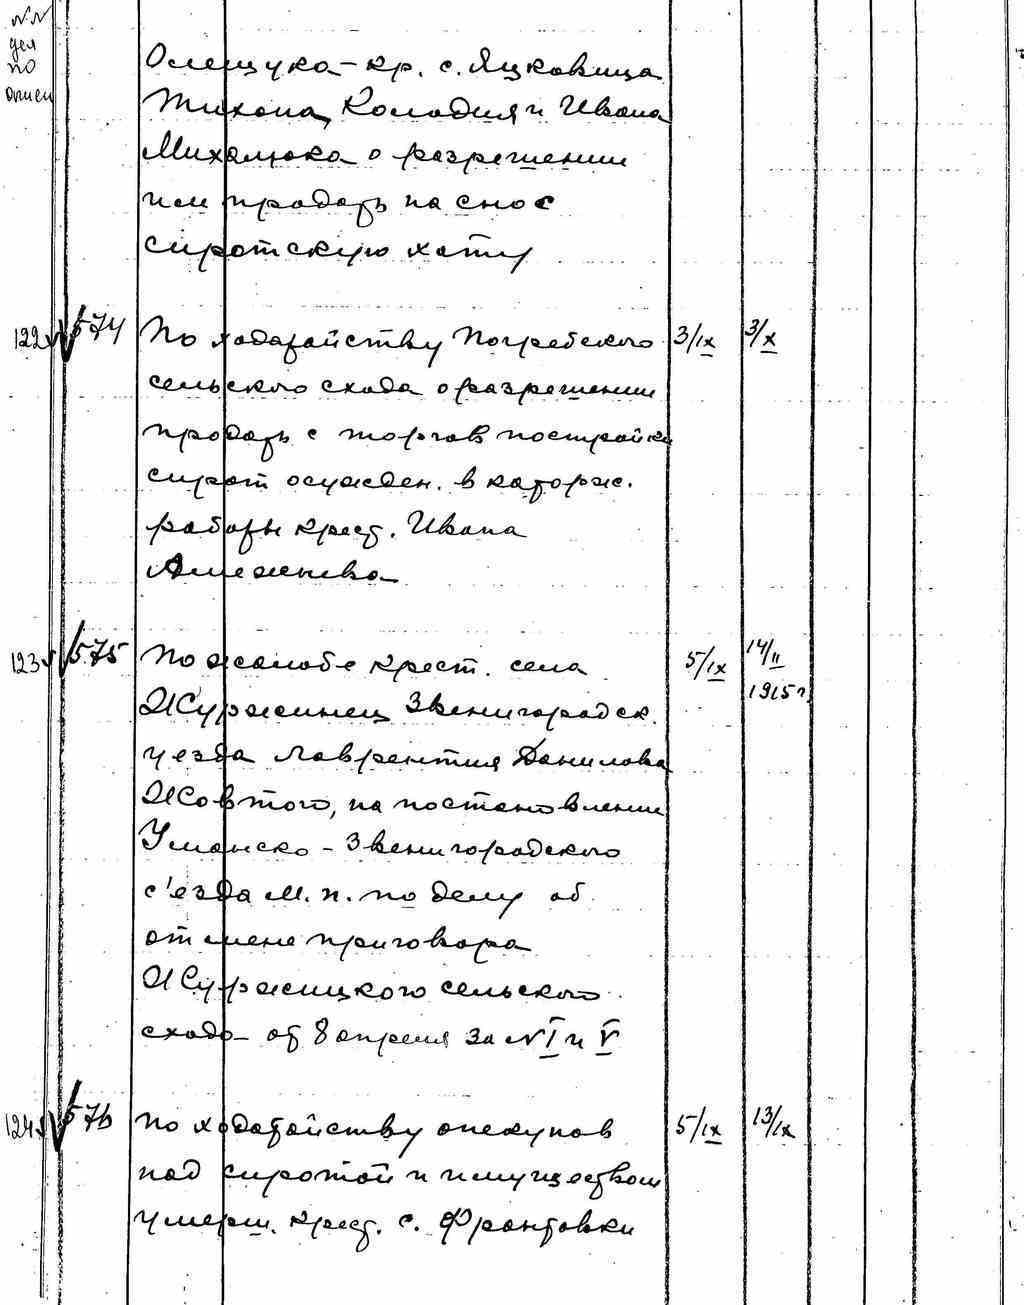 №№
дел
по
описи
Олещука – кр. с. Яцковица
Тихона Колодия и Ивана
Михалюка о разрешении
им продать на снос
сиротскую хату
122 574 По ходатайству Погребского 3/IX 3/X
сельского схода о разрешении
продать с торгов постройки
сирот осужден. в каторж.
работы крест. Ивана
123 575 По жалобе крест. села 5/IX 14/II
1915 г.
Журжинец Звенигородск.
уезда Лаврентия Данилова
Жовтого, на постановлении
Уманско – Звенигородского
с'езда М. п. по делу об
отмене приговора
Журжицкого сельского
схода от 8 апреля за № I и V
124 576 По ходатайству опекунов 5/IX 13/IX
над сиротой и имуществом
умерш. крест. с. Фронтовки